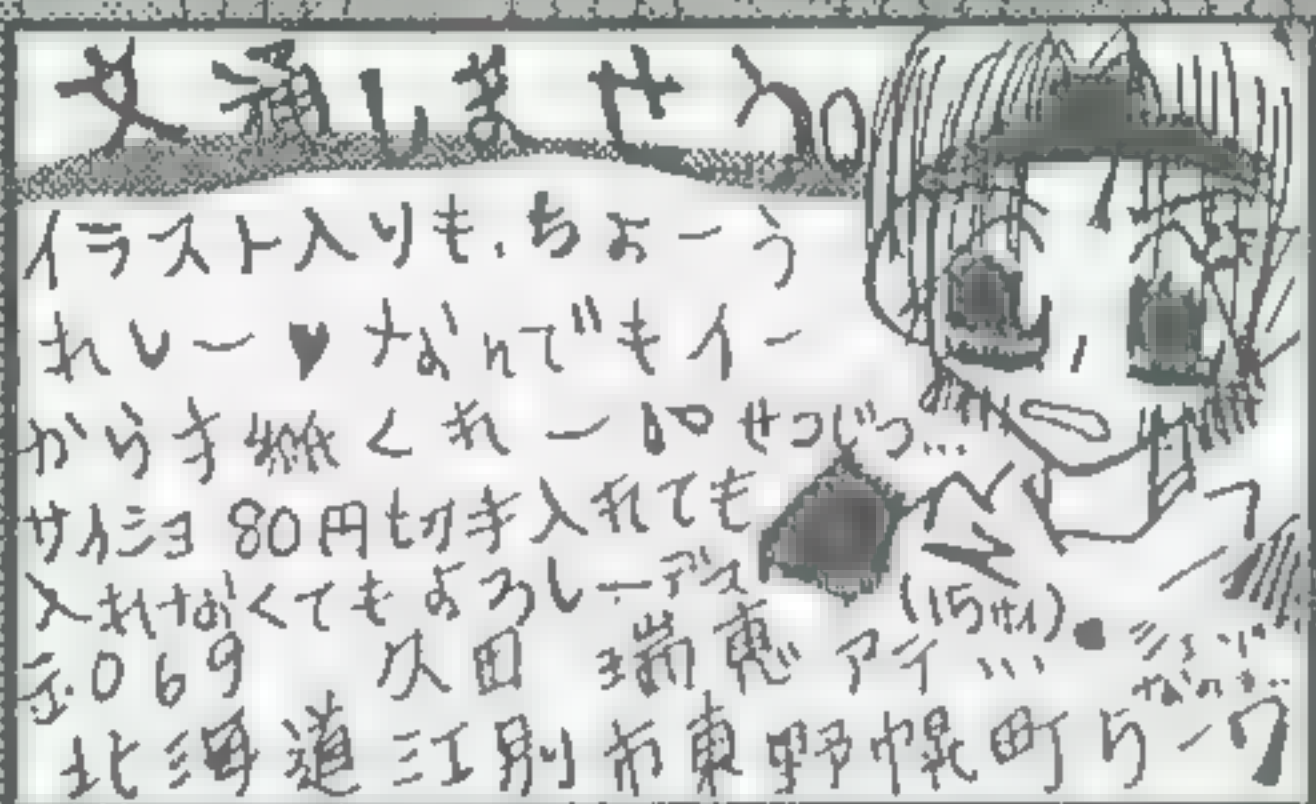 文通しませう。
イラスト入りも、ちょーう
れしー♥なんでもイー
から手紙くれー!!せつじつ…
サイショ80円切手入れても
入れなくてもよろしーデス
(15才)
〒069 久田 瑞恵 アテ…
北海道江別市東野幌町5-7